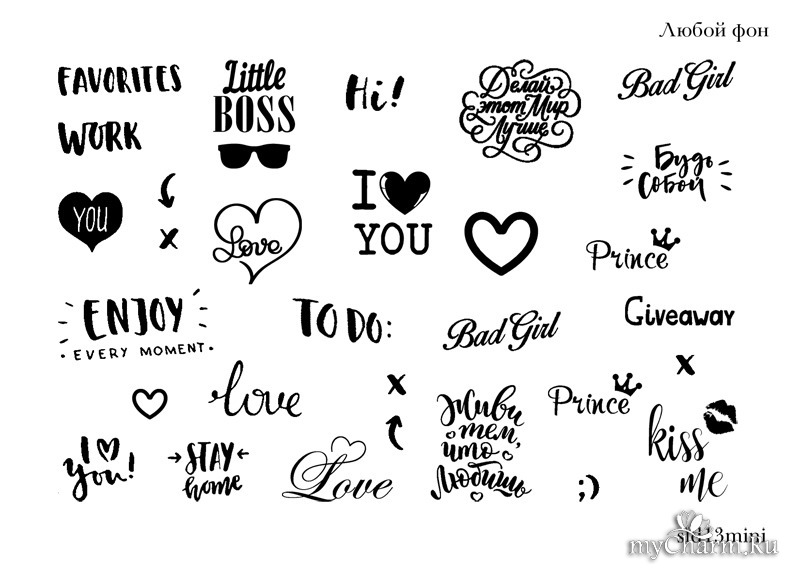 Любой фон
FAVORITES
Little
BOSS
Hi!
Делай
этот Мир
Лучше
Bad Girl
WORK
Будь
Собой
YOU
x
Love
I
YOU
Prince
ENJOY
EVERY MOMENT.
TO DO:
Bad Girl
Giveaway
x
love
x
Живи
тем,
что
Любишь
Prince
kiss
me
I
you!
STAY
home
Love
;)
sld13mini
myCharm.Ru